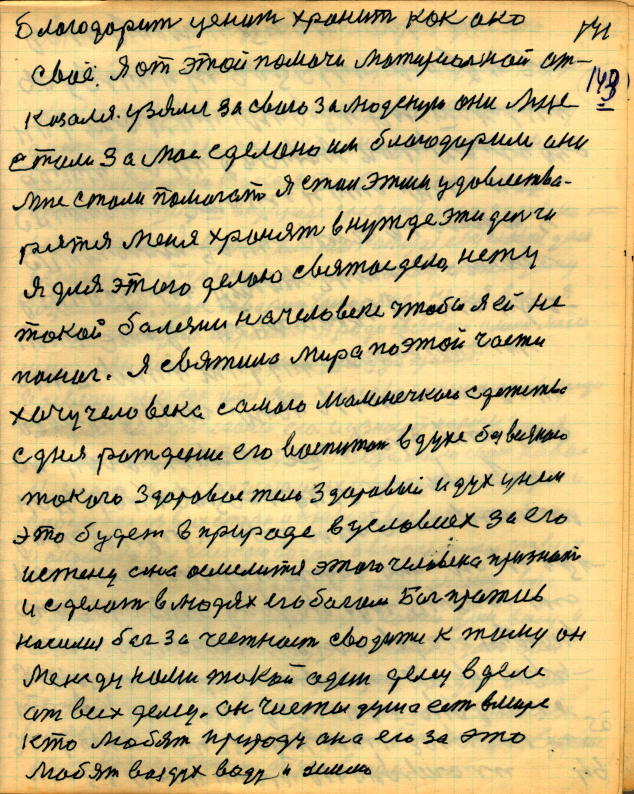 благодарит ценит хранит как око 741
своё. Я от этой помочи материальной от- 148
казался. узяли за свою за людскую они мне
стали за мое сделано им благодарили они
мне стали помогать Я стал этим удовлетва-
рятся меня хранят в нужде эти деньги
Я для этого делаю святое дело, нету
такой балезни на человеке чтобы я ей не
помог. Я святило мира по этой части
хочу человека самого маленечкого сделать
с дня рождение его воспитат в духе
такого здоровое тело здоровый и дух у нем
это будет в природе в условиех за его
истену она осмелится этого человека признат
и сделат в людях его богом Бог против
насилия бог за честност сводити к тому он
между нами такой один делец в деле
от всех делец. он чистая душа ест в мире
кто любят природу она его за это
любят воздух воду и землю